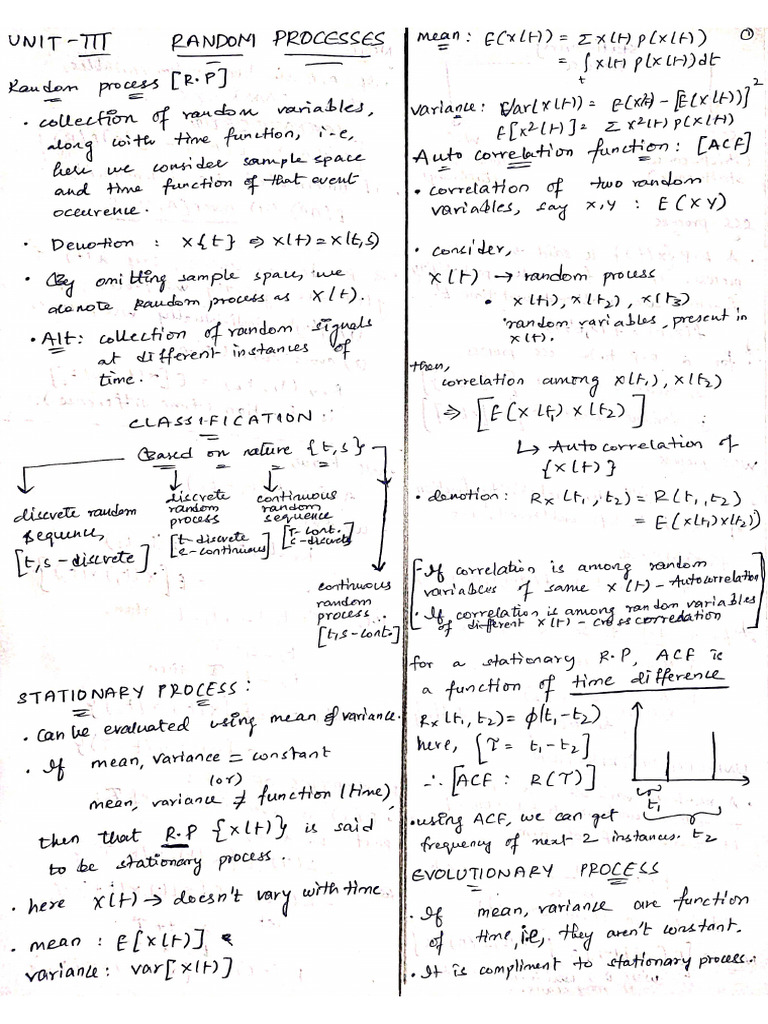 UNIT-III RANDOM PROCESSES
Random process [R.P]
• collection of random variables,
along with time function, i.e,
here we consider sample space
and time function of that event
occurence.
• Denotion : X{t} ⇒ X(t) = X(t,s)
• By omitting sample space, we
denote Random process as X(t).
• Alt: collection of random signals
at different instances of
time.
CLASSIFICATION:
Based on nature {t,s}
discrete random
sequence,
[t,s - discrete]
discrete
random
process
[t-discrete
s-continuous]
continuous
random
sequence
[T-cont.
s-discrete]
continuous
random
process...
[t,s-cont.]
STATIONARY PROCESS:
• Can be evaluated using mean & variance.
• If mean, variance = constant
(or)
mean, variance ≠ function (time)
then that R.P {X(t)} is said
to be stationary process.
• here X(t) → doesn't vary with time
• mean : E[X(t)] &
variance: var[X(t)]
①
mean : E(X(t)) = Σ X(t) P(X(t))
= ∫ X(t) P(X(t)) dt
t
variance: Var(X(t)) = E(X²) - [E(X(t))]²
E[X²(t)] = Σ X²(t) P(X(t))
Auto correlation function: [ACF]
• correlation of two random
variables, say X,Y : E(XY)
• consider,
X(t) → random process
• X(t1), X(t2), X(t3)
• random variables, present in
X(t).
then,
correlation among X(t1), X(t2)
⇒ [E(X(t1) X(t2)]
↳ Autocorrelation of
{X(t)}
• denotion: Rx(t1, t2) = R(t1, t2)
= E(X(t1)X(t2))
[• If correlation is among random
variables of same X(t) - Autocorrelation
• If correlation is among random variables
of different X(t) - cross correlation]
for a stationary R.P, ACF is
a function of time difference
Rx(t1, t2) = φ(t1-t2)
here, [τ = t1-t2]
∴ [ACF : R(τ)]
t1
t2
• using ACF, we can get
frequency of next 2 instances.
EVOLUTIONARY PROCESS
• If mean, variance are function
of time, i.e, they aren't constant.
• It is compliment to stationary process.